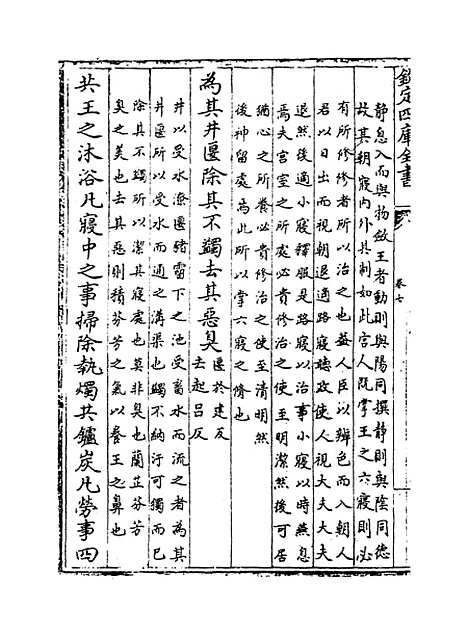 欽定四庫全書
卷七
靜息入而與物斂王者動則與陽同撰靜則與陰同德
故其朝寢內外其制如此宮人既掌王之六寢則必
有所修修者所以治之也蓋人臣以辨色而入朝人
君以日出而視朝退適路寢聽政使人視大夫大夫
退然後適小寢釋服是路寢以治事小寢以時燕息
焉夫宮室之所處必貴修治之使至明潔然後可居
猶心之所養必貴修治之使至清明然
後神留處焉此所以掌六寢之脩也
為其井匽除其不蠲去其惡臭
匽於建反
去起呂反
井以受水潦匽豬霤下之池受畜水而流之者為其
井匽所以受水而通之溝渠也蠲不納汙可蠲而已
除其不蠲所以潔其寢處也莫非臭也蘭芷芬芳
臭之美也去其惡則積芬芳之氣以養王之鼻也
共王之沐浴凡寢中之事掃除執燭共鑪炭凡勞事四